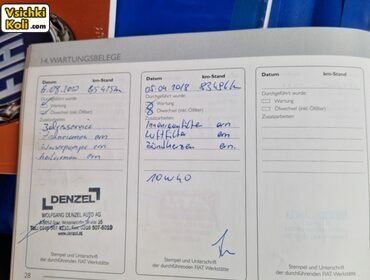 Vsichki
Koli.com
14. WARTUNGSBELEGE
Datum km-Stand
Durchgeführt wurde:
Wartung
Ölwechsel (inkl. Ölfilter)
Zusatzarbeiten:
Jahresservice
Zahnriemen ern
Wasserpumpe ern
Keilriemen ern
DENZEL
WOLFGANG DENZEL AUTO AG
www.denzel.at
Stempel und Unterschrift
der durchführenden FIAT Werkstätte
28
Datum km-Stand
05.04.2018
Durchgeführt wurde:
Wartung
Ölwechsel (inkl. Ölfilter)
Zusatzarbeiten:
Innenraumfilter ern
Luftfilter ern
Zündkerzen ern.
10W40
Stempel und Unterschrift
der durchführenden FIAT Werkstätte
Datum km-Stand
Durchgeführt wurde:
Wartung
Ölwechsel (inkl. Ölfilter)
Zusatzarbeiten:
Stempel und Unterschrift
der durchführenden FIAT Werkstätte